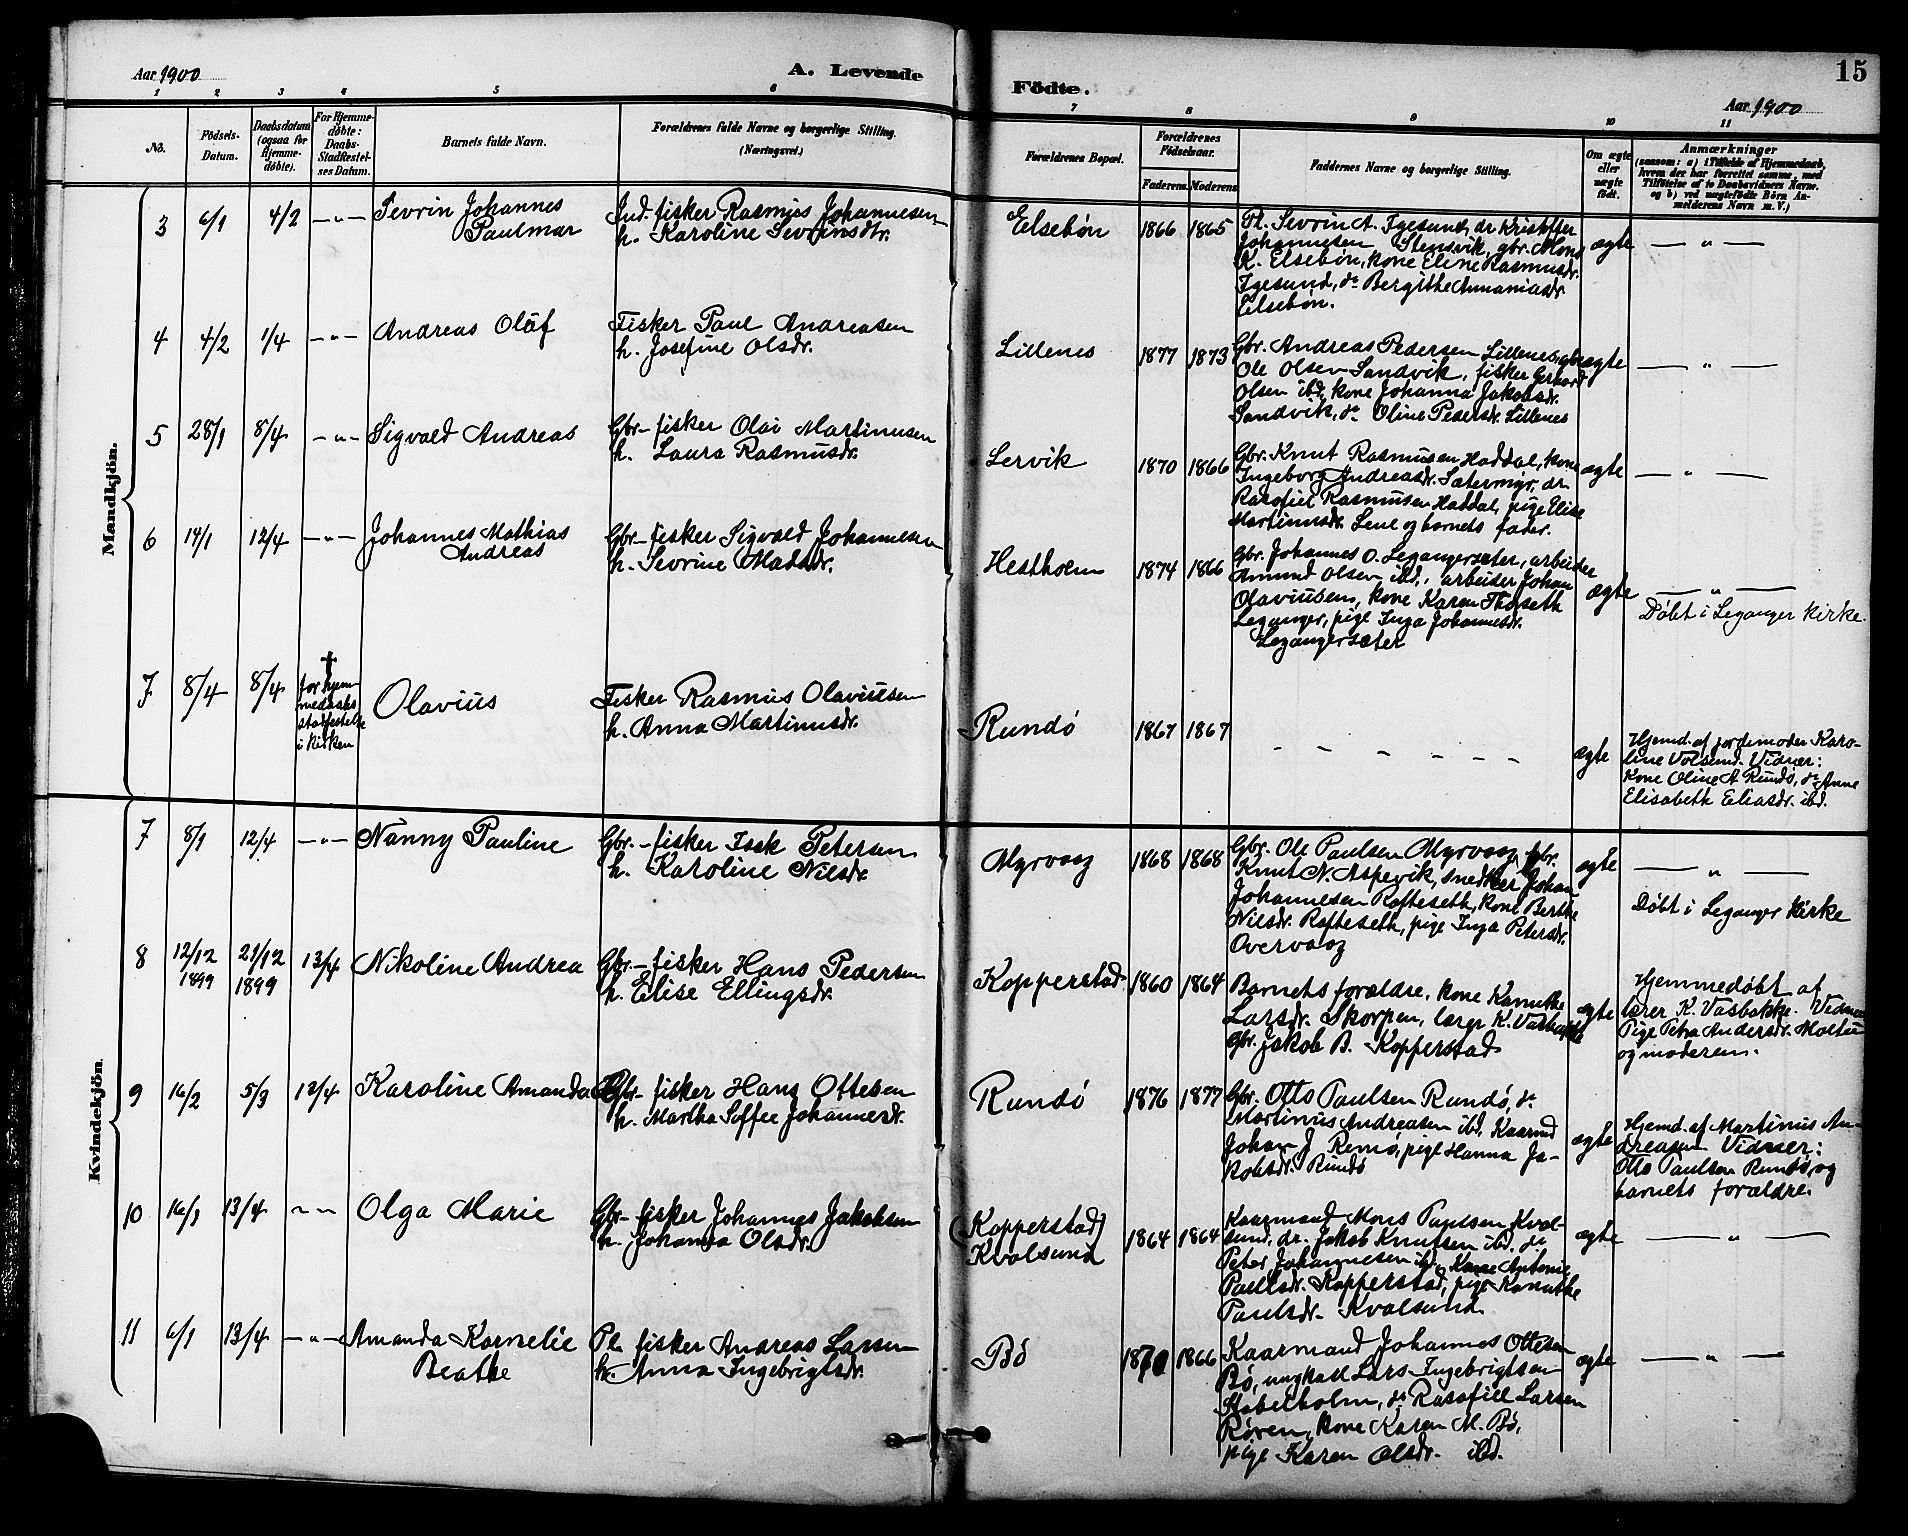 Aar 1900
A. Levende
Fødte.
15
Aar 1900
1 2 3 4 5 6 7 8 9 10 11
No.
Fødsels-
Datum.
Daabsdatum
(ogsaa for
Hjemme-
døbte).
For Hjemme-
døbte:
Daabs-
Stadfæstel-
ses Datum.
Barnets fulde Navn.
Forældrenes fulde Navne og borgerlige Stilling.
(Næringsvei.)
Forældrenes Bopæl.
Forældrenes
Fødselsaar.
Faderens Moderens
Faddernes Navne og borgerlige Stilling.
Om ægte
eller
uægte
født.
Anmærkninger
(saasom: a) i Tilfælde af Hjemmedaab,
hvem der har forrettet samme, med
Tilføielse af to Daabsvidners Navne,
og b) ved uægtefødte Børn An-
melderens Navn m. V.)
Mandkjön.
3 6/1 4/2 — " —
Sevrin Johannes
Paulmar
Ind. fisker Rasmus Johannesen
h. Karoline Sevrinsdtr.
Elsebøn
1866 1865
Pl. Sevrin A. Igesund, dr Kristoffer
Johannesen Stensvik, gbr. Mons
K. Elsebøn, kone Eline Rasmusdr.
Igesund, do Bergithe Annaniasdr.
Elsebøn.
ægte
— " —
4 4/2 1/4 — " —
Andreas Olaf
Fisker Paul Andreasen
h. Josefine Olsdr.
Lillenes
1877 1873
Gbr. Andreas Pedersen Lillenes, gbr.
Ole Olsen Sandvik, fisker Gerhard
Olsen ibd, kone Johanna Jakobsdr.
Sandvik, do Oline Pedersdr. Lillenes
ægte
— " —
5 28/1 8/4 — " —
Sigvald Andreas
Gbr- fisker Olai Martinusen
h. Laura Rasmusdr.
Lervik
1870 1866
Gbr. Knut Rasmusen Haddal, kone
Ingeborg Andreasdr. Sætermyr, dr
Rasofiel Rasmusen Haddal, pige Elise
Martinusdr. Lene og barnets fader.
ægte
— " —
6 14/1 12/4 — " —
Johannes Mathias
Andreas
Gbr- fisker Sigvald Johannesen
h. Sevrine Madsdr.
Hestholm
1874 1866
Gbr. Johannes O. Legangersæter, arbeider
Amund Olsen ibd., arbeider Johan
Olaviusen, kone Karen Thoseth
Leganger, pige Inga Johannesdr.
Legangersæter
ægte
— " —
Døbt i Leganger kirke.
7 8/4 8/4
†
før hjem-
medaabs
stadfestelse
i kirken
Olavius
Fisker Rasmus Olaviusen
h. Anna Martinusdr.
Rundø
1867 1867
- - - - - -
ægte
Hjemd. af jordemoder Karo-
line Volsund. Vidner:
Kone Oline A Rundø, do Anne
Elisabeth Eliasdr. ibd.
Kvindekjön.
7 8/1 12/4 — " —
Nanny Pauline
Gbr. - fisker Isak Petersen
h. Karoline Nilsdr.
Myrvaag
1868 1868
Gbr. Ole Paulsen Myrvaag, gbr.
Knut N. Aspevik, snedker Johan
Johannesen Rafteseth, kone Berthe
Nilsdr. Rafteseth, pige Inga Petersdr.
Overvaag
ægte
— " —
Døbt i Leganger kirke
8 12/12 1899 21/12 1899 13/4
Nikoline Andrea
Gbr.- fisker Hans Pedersen
h. Elise Ellingsdr.
Kopperstad
1860 1864
Barnets forældre, kone Kanutke
Larsdr. Skorpen, lærer K. Vasbakke
Gbr. Jakob B. Kopperstad
ægte
Hjemmedøbt af
lærer K. Vasbakke. Vidner
Pige Petra Andersdr. Moltu
og moderen.
9 16/2 5/3 12/4
Karoline Amanda
Gbr- fisker Hans Ottesen
h. Martha Soffie Johannesdr.
Rundø
1876 1877
Gbr. Otto Paulsen Rundø, do
Martinus Andreasen ibd, Kaarmd
Johan J. Remø, pige Hanna Ja-
kobsdr. Rundø
ægte
Hjemd. af Martinus An-
dreasen Vidner:
Otto Paulsen Rundø, og
barnets forældre.
10 16/1 13/4 " "
Olga Marie
Gbr- fisker Johannes Jakobsen
h. Johanna Olsdr.
(Kopperstad)
Kvalsund
1864 1864
Kaarmand Mons Paulsen Kval-
sund, dr. Jakob Knutsen ibd. do
Peter Johannesen ibd, Kone Antonie
Paulsdr. Kopperstad, pige Kanutke
Paulsdr. Kvalsund
ægte
— " —
11 6/1 13/4 — " —
Amanda Kornelie
Beathe
Pl. fisker Andreas Larsen
h. Anna Ingebrigtsdr.
Bø
1870 1866
Kaarmand Johannes Ottesen
Bø, ungkarl Lars Ingebrigtsen
Stabelholm, do Rasofiel Larsen
Røren, kone Karen M. Bø,
pige Karen Olsdr. ibd.
ægte
— " —